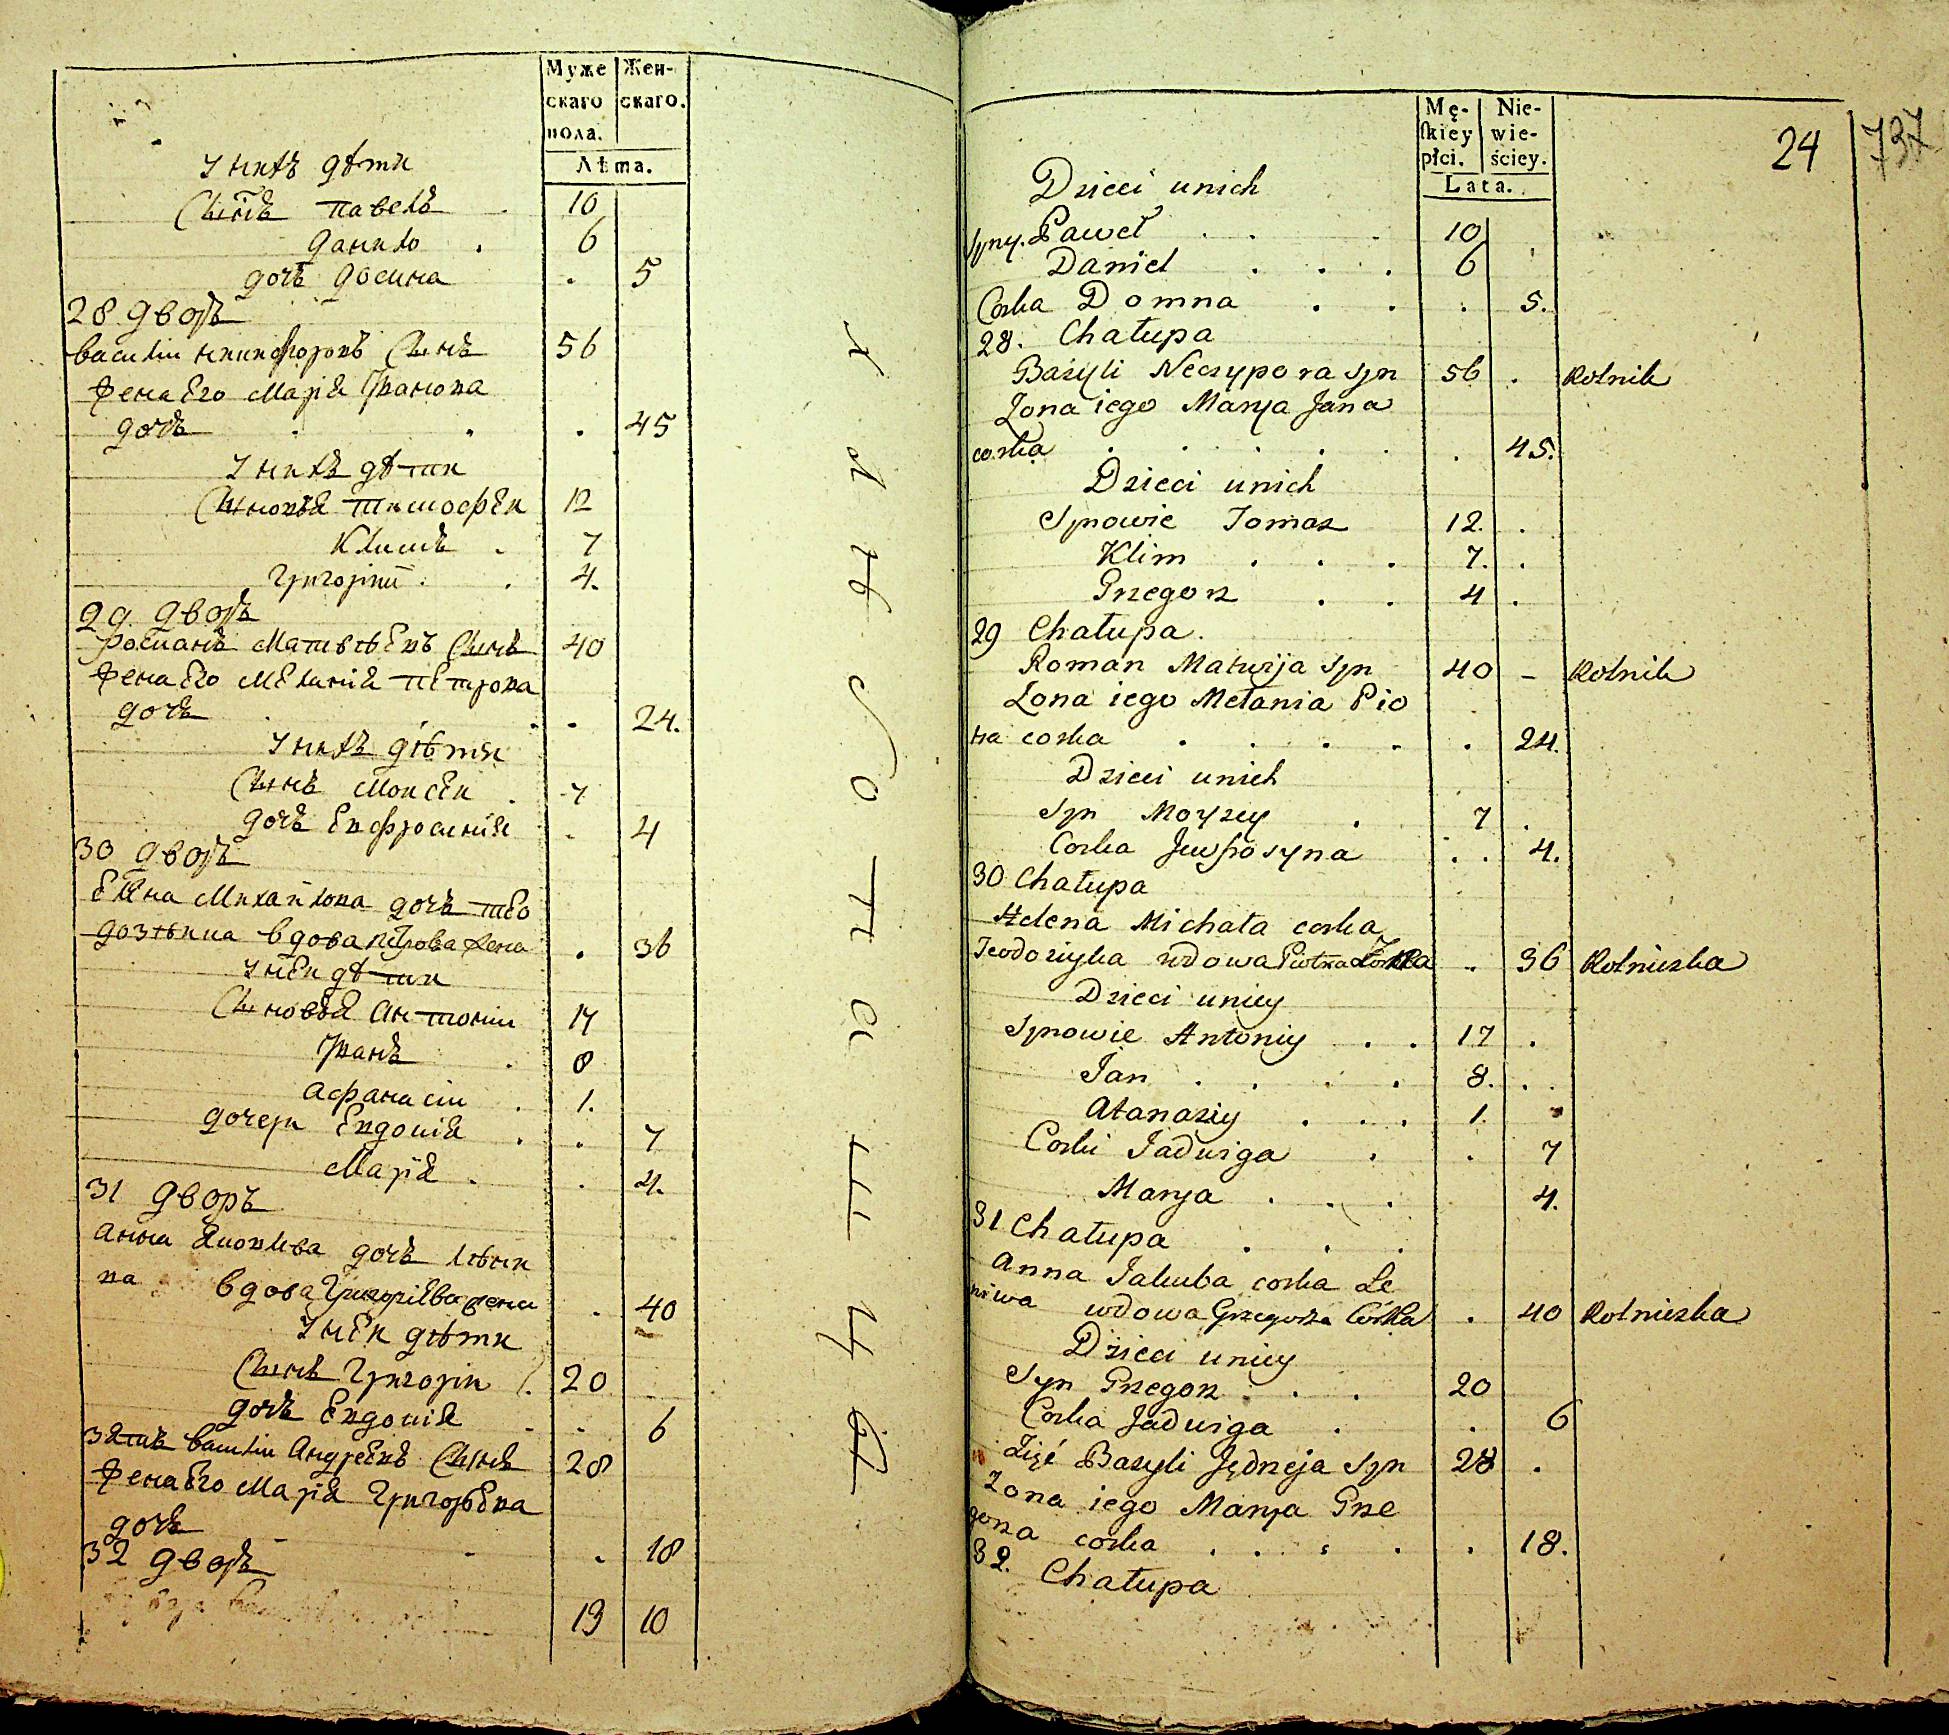 Муже Жен-
скаго скаго.
пола.
Лѣта.
у нихъ дѣти
Сынъ павелъ 10
данило 6
дочъ домна 5
28 дворъ
василии никифоровъ Сынъ 56
жена Его Марія Iванова
дочъ 45
у нихъ дѣти
Сыновья тимофей 12
Климъ 7
григорий 4.
29 дворъ
романъ Матвѣевъ Сынъ 40
жена Его Меланія петрова
дочъ 24.
у нихъ дѣти
Сынъ Моисей 7
дочъ Евфросинія 4
30 дворъ
Елена Михайлова дочъ тео
вдова петрова жена 36
у неи дѣти
Сыновья антонии 17
Iванъ 8
афанасии 1.
дочери Евдокия 7
Марія 4.
31 дворъ
анна Яковлева дочъ лѣни
ва вдова Григоріева жена 40
у неи дѣти
Сынъ григорий 20
дочъ Евдокия 6
зять василии Андреевъ Сынъ 28
жена Его Марія Григорьева
дочъ 18
32 дворъ
19 10
хлѣбопашцы
Mę- Nie-
ſkiey wie-
płci. ściey.
Lata.
24 737
Dzieci unich
syny. Paweł 10
Daniel 6
Corka Domna 5.
28. Chałupa
Bazyli Neczypora syn 56 Rolnik
Zona iego Marya Jana
corka 45.
Dzieci unich
Synowie Tomasz 12.
Klim 7.
Grzegorz 4
29 Chałupa.
Roman Matwija syn 40 Rolnik
Zona iego Mełania Pio
tra corka 24.
Dzieci unich
Syn Moyzey 7
Corka Jewfrosyna 4.
30 Chałupa
Helena Michała corka
Teodozijka wdowa Piotra 36 Rolniczka
Dzieci uniey
Synowie Antoniy 17
Jan 8.
Atanaziy 1.
Corki Jadwiga 7
Marya 4.
31 Chałupa
Anna Jakuba corka Le
niwa wdowa Grzegorza Córka 40 Rolniczka
Dzieci uniey
Syn Grzegorz 20
Corka Jadwiga 6
Zięć Bazyli Jędrzeja syn 28
Zona iego Marya Grze
gorza corka 18.
32. Chałupa